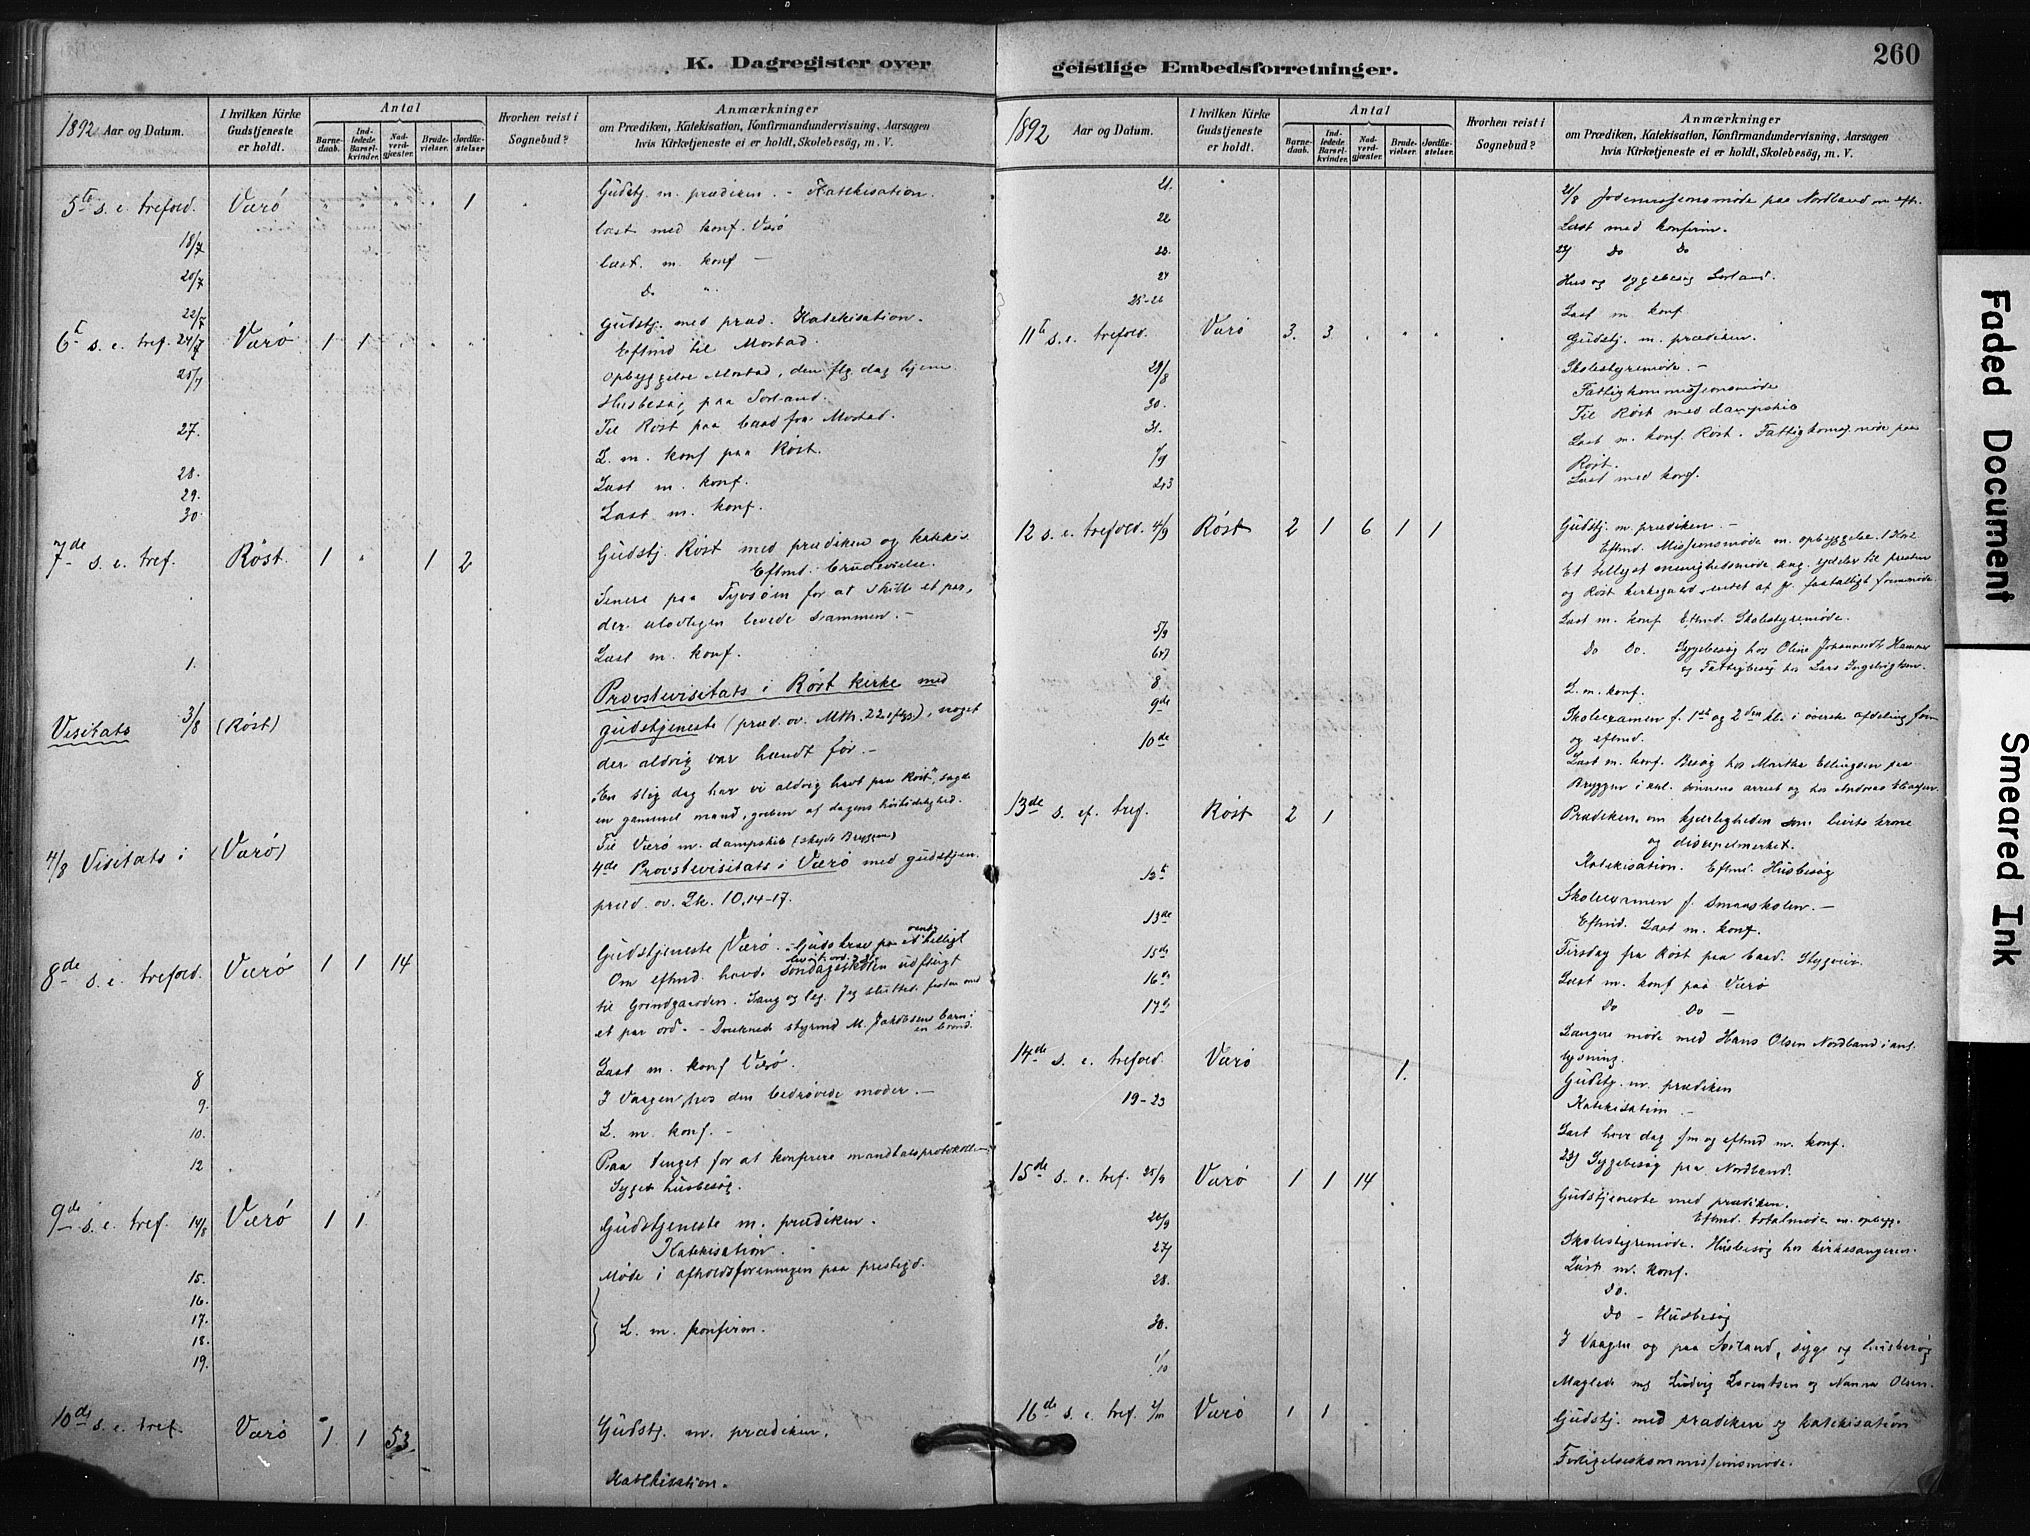 K. Dagregister over
1892 Aar og Datum.
I hvilken Kirke Gudstjeneste er holdt.
Antal
Barnedaab.
Indledede Barselkvinder.
Nadverdgjæster.
Brudevielser.
Jordfæstelser.
Hvorhen reist i Sognebud?
Anmærkninger
om Prædiken, Katekisation, Konfirmandundervisning, Aarsagen
hvis Kirketjeneste ei er holdt, Skolebesøg, m. V.
5te s. e. trefold. Værö 1 Gudstj. m. prædiken. - Katekisation.
18/7 læst med konf. Værö
20/7 læst. m. konf -
22/7 Do "
6te s. e. tref. 24/7 Værö 1 1 Gudstj. med præd. Katekisation.
Eftmd til Mostad.
25/7 Opbyggelse Mostad, den flg. dag hjem.
Husbesøg paa Sørland.
27. Til Røst paa baad fra Mostad.
L. m. konf paa Røst.
28. Læst m. konf.
29.
30 Læst m. konf.
7de s. e. tref. Røst. 1 1 2 Gudstj. Røst med prædiken og katekis
Eftmd. brudevielse.
Senere paa Tyvsöen for at skille et par,
der ulovligen levede sammen. -
1. Læst m. konf.
Visitats 3/8 (Røst) Provstevisitats i Røst kirke med
gudstjeneste (præd. ov. Mth. 22 flgs), noget
der aldrig var hændt før. -
"En slig dag har vi aldrig havt paa Røst", sagde
en gammel mand, greben af dagens høitidelighed.
Til Værö m. dampskib (skyds Bryggen)
4/8 Visitats i (Værö) 4de Provstevisitats i Værö med gudstjen.
præd. ov. Lk. 10, 14-17.
8de s. e. trefold. Værö 1 1 14 Gudstjeneste (Værö.
Om eftmd. havde söndagsskolen udflugt
til Grindgaarden. Sang og leg. Jeg sluttede festen med
et par ord. - Druknede styrmd M. Jakobsens barn i
en brönd.
8 Læst m. konf Værö.
9. I Vaagen hos den bedrøvede moder. -
10. L. m. konf. -
12 Paa tinget for at konferere mandtalsprotokollen.
Syge & husbesög.
9de s. e. tref. 14/8 Værö 1 1 Gudstjeneste m. prædiken.
Katekisation.
15. Møde i afholdsforeningen paa prestegd.
16.
17.
18. L. m. konfirm.
19.
10de s. e. tref. Værö 1 1 53 Gudstj. m. prædiken.
Katekisation.
geistlige Embedsforretninger.
260
1892 Aar og Datum.
I hvilken Kirke Gudstjeneste er holdt.
Antal
Barnedaab.
Indledede Barselkvinder.
Nadverdgjæster.
Brudevielser.
Jordfæstelser.
Hvorhen reist i Sognebud?
Anmærkninger
om Prædiken, Katekisation, Konfirmandundervisning, Aarsagen
hvis Kirketjeneste ei er holdt, Skolebesøg, m. V.
21. 21/8 Jødemissionsmøde paa Nordland om eftr.
22 Læst med konfirm.
23. 23) Do Do
24 Hus og sygebesøg Sørland.
25-26 Læst m. konf
11te s. e. trefold. Værö 3. 3 Gudstj. m. prædiken.
29/8 Skolestyremøde. -
Fattigkommissionsmøde
30. Til Røst med dampskib
31. Læst m. konf. Røst. Fattigkomsj. møde paa
1/9 Røst.
2&3 Læst med konf.
12 s. e. trefold. 4/9 Røst 2 1 6 1 1 Gudstj. m. prædiken. -
Eftmd. Missionsmøde m. opbyggelse.
og Røst kirkegaard, endet af gr. faatalligt fremmøde.
5/9 Læst m. konf Eftmd. Skolestyremøde.
6&7 Do Do. Sygebesøg hos Oline Johannesdt. Hammer
og Fattigbesøg hos Lars Ingebrigtsen.
8 L. m. konf.
9de Skoleexamen f. 1ste og 2den kl. i øverste afdeling form
og eftmd.
10de Læst m. konf. Besøg hos Martha Ellingsen paa
Bryggen i anl. sønnens arrest og hos Andreas
13de s. ef. tref. Røst 2 1 Prædiken om kjærligheden som livets krone
og discipelmerket.
Katekisation. Eftmd. Husbesøg
12te Skoleexamen f. smaaskolen. -
13de Eftmd. Læst m. konf.
15de Tirsdag fra Røst paa baad. Stygveir.
16de Læst m. konf paa Værö
17de Do Do -
Længere møde med Hans Olsen Nordland i anl.
lysning.
14de s. e. trefold. Værö 1. Gudstj. m. prædiken
Katekisation. -
19-23 Læst hver dag fm og eftmd m. konf.
23) Sygebesøg paa Nordland.
15de s. e. tref. 25/9 Værö 1 1 14 Gudstjeneste med prædiken.
Eftmd. totalmøde m. opbygg.
26/9 Skolestyremøde. Husbesøg hos kirkesangeren.
27) Læst m. konf.
28. Do.
Do - Husbesøg
30. I Vaagen og paa Sørland, syge og husbesøg
1/10 Mæglede mg Ludvig Lorentsen og Nanna Olsen.
16de s. e. tref. 2/10 Værö 1 1 Gudstj. med prædiken og katekisation
Forligelseskommissionsmøde.
Faded Document
Smeared Ink